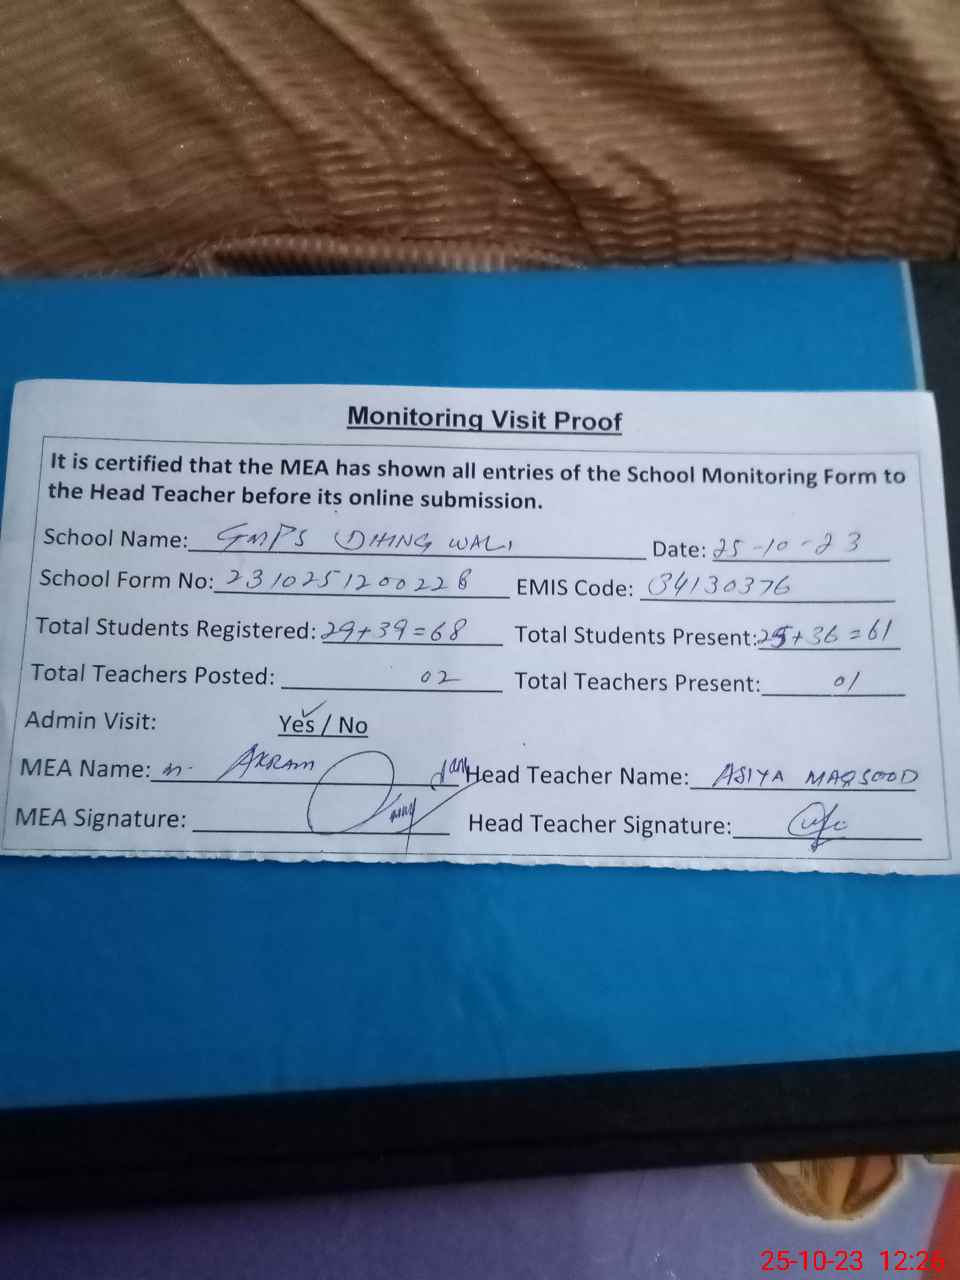 Monitoring Visit Proof
It is certified that the MEA has shown all entries of the School Monitoring Form to
the Head Teacher before its online submission.
School Name: GMPS DHING WALI Date: 25-10-23
School Form No: 2310251200228 EMIS Code: 34130376
Total Students Registered: 29+39=68 Total Students Present: 25+36=61
Total Teachers Posted: 02 Total Teachers Present: 01
Admin Visit: Yes / No
MEA Name: M. AKRAM Head Teacher Name: ASIYA MAQSOOD
MEA Signature: Head Teacher Signature:
25-10-23 12:26